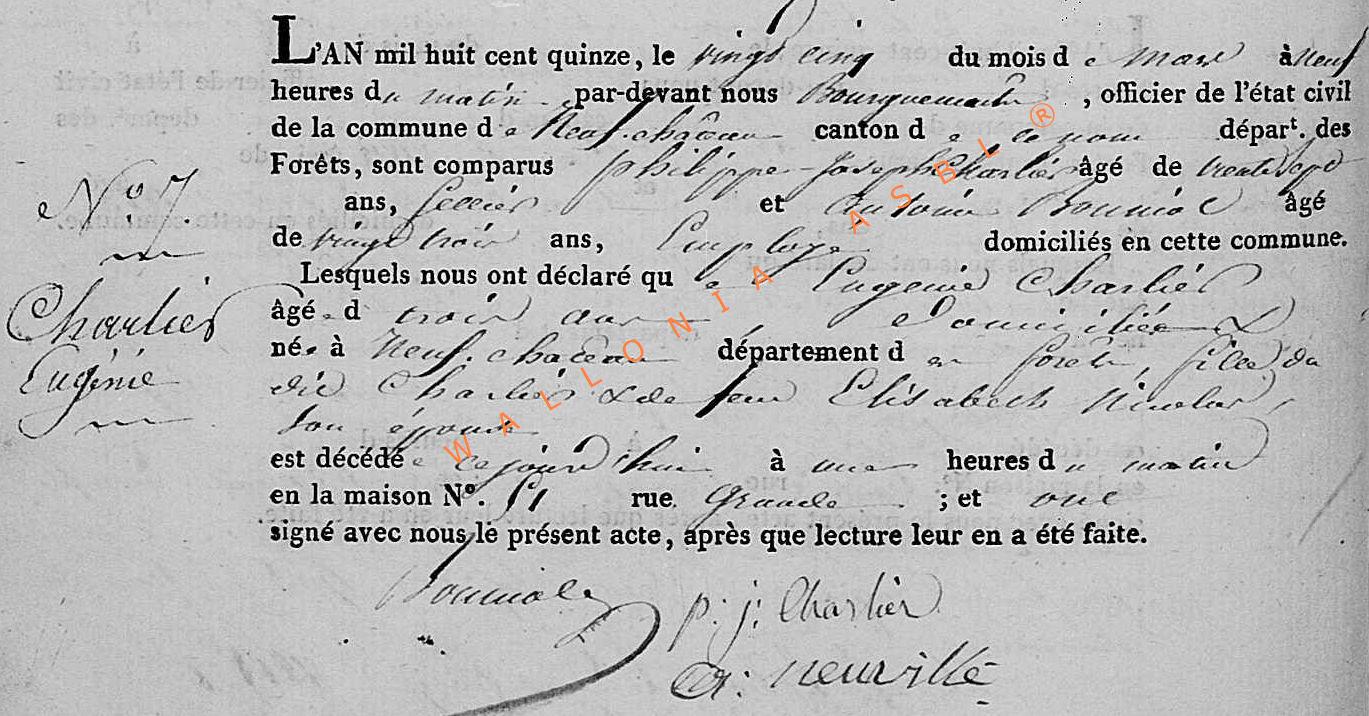 L'AN mil huit cent quinze, le vingt cinq du mois de mars à neuf
heures du matin par-devant nous Bourguemaitre, officier de l'état civil
de la commune de Neufchâteau canton de ce nom départ. des
Forêts, sont comparus Philippe-Joseph Charlier âgé de trente sept
ans, sellier et Antoine Bouniol âgé
de vingt trois ans, Employé domiciliés en cette commune.
Lesquels nous ont déclaré que Eugénie Charlier
âgée de trois ans, Domiciliée &
née à Neufchâteau département des forêts, fille du
dit Charlier & de feue Elisabeth Nicolas,
son épouse
est décédée ce jourd'hui à une heures du matin
en la maison N°. 51 rue Grande ; et ont
signé avec nous le présent acte, après que lecture leur en a été faite.
N° 7.
Charlier
Eugénie
Bouniol
p: j: Charlier
neuville
WALLONIA ASBL ®